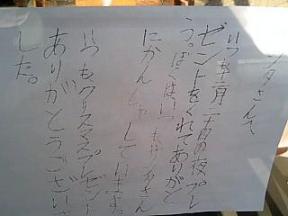 ンタさんへ
いつも十二月二十四日の夜プレ
ゼントをくれてありがと
う。ぼくはいつもサンタさん
にかんしゃしています。
いつもクリスマスプレゼント
ありがとうござい
した。